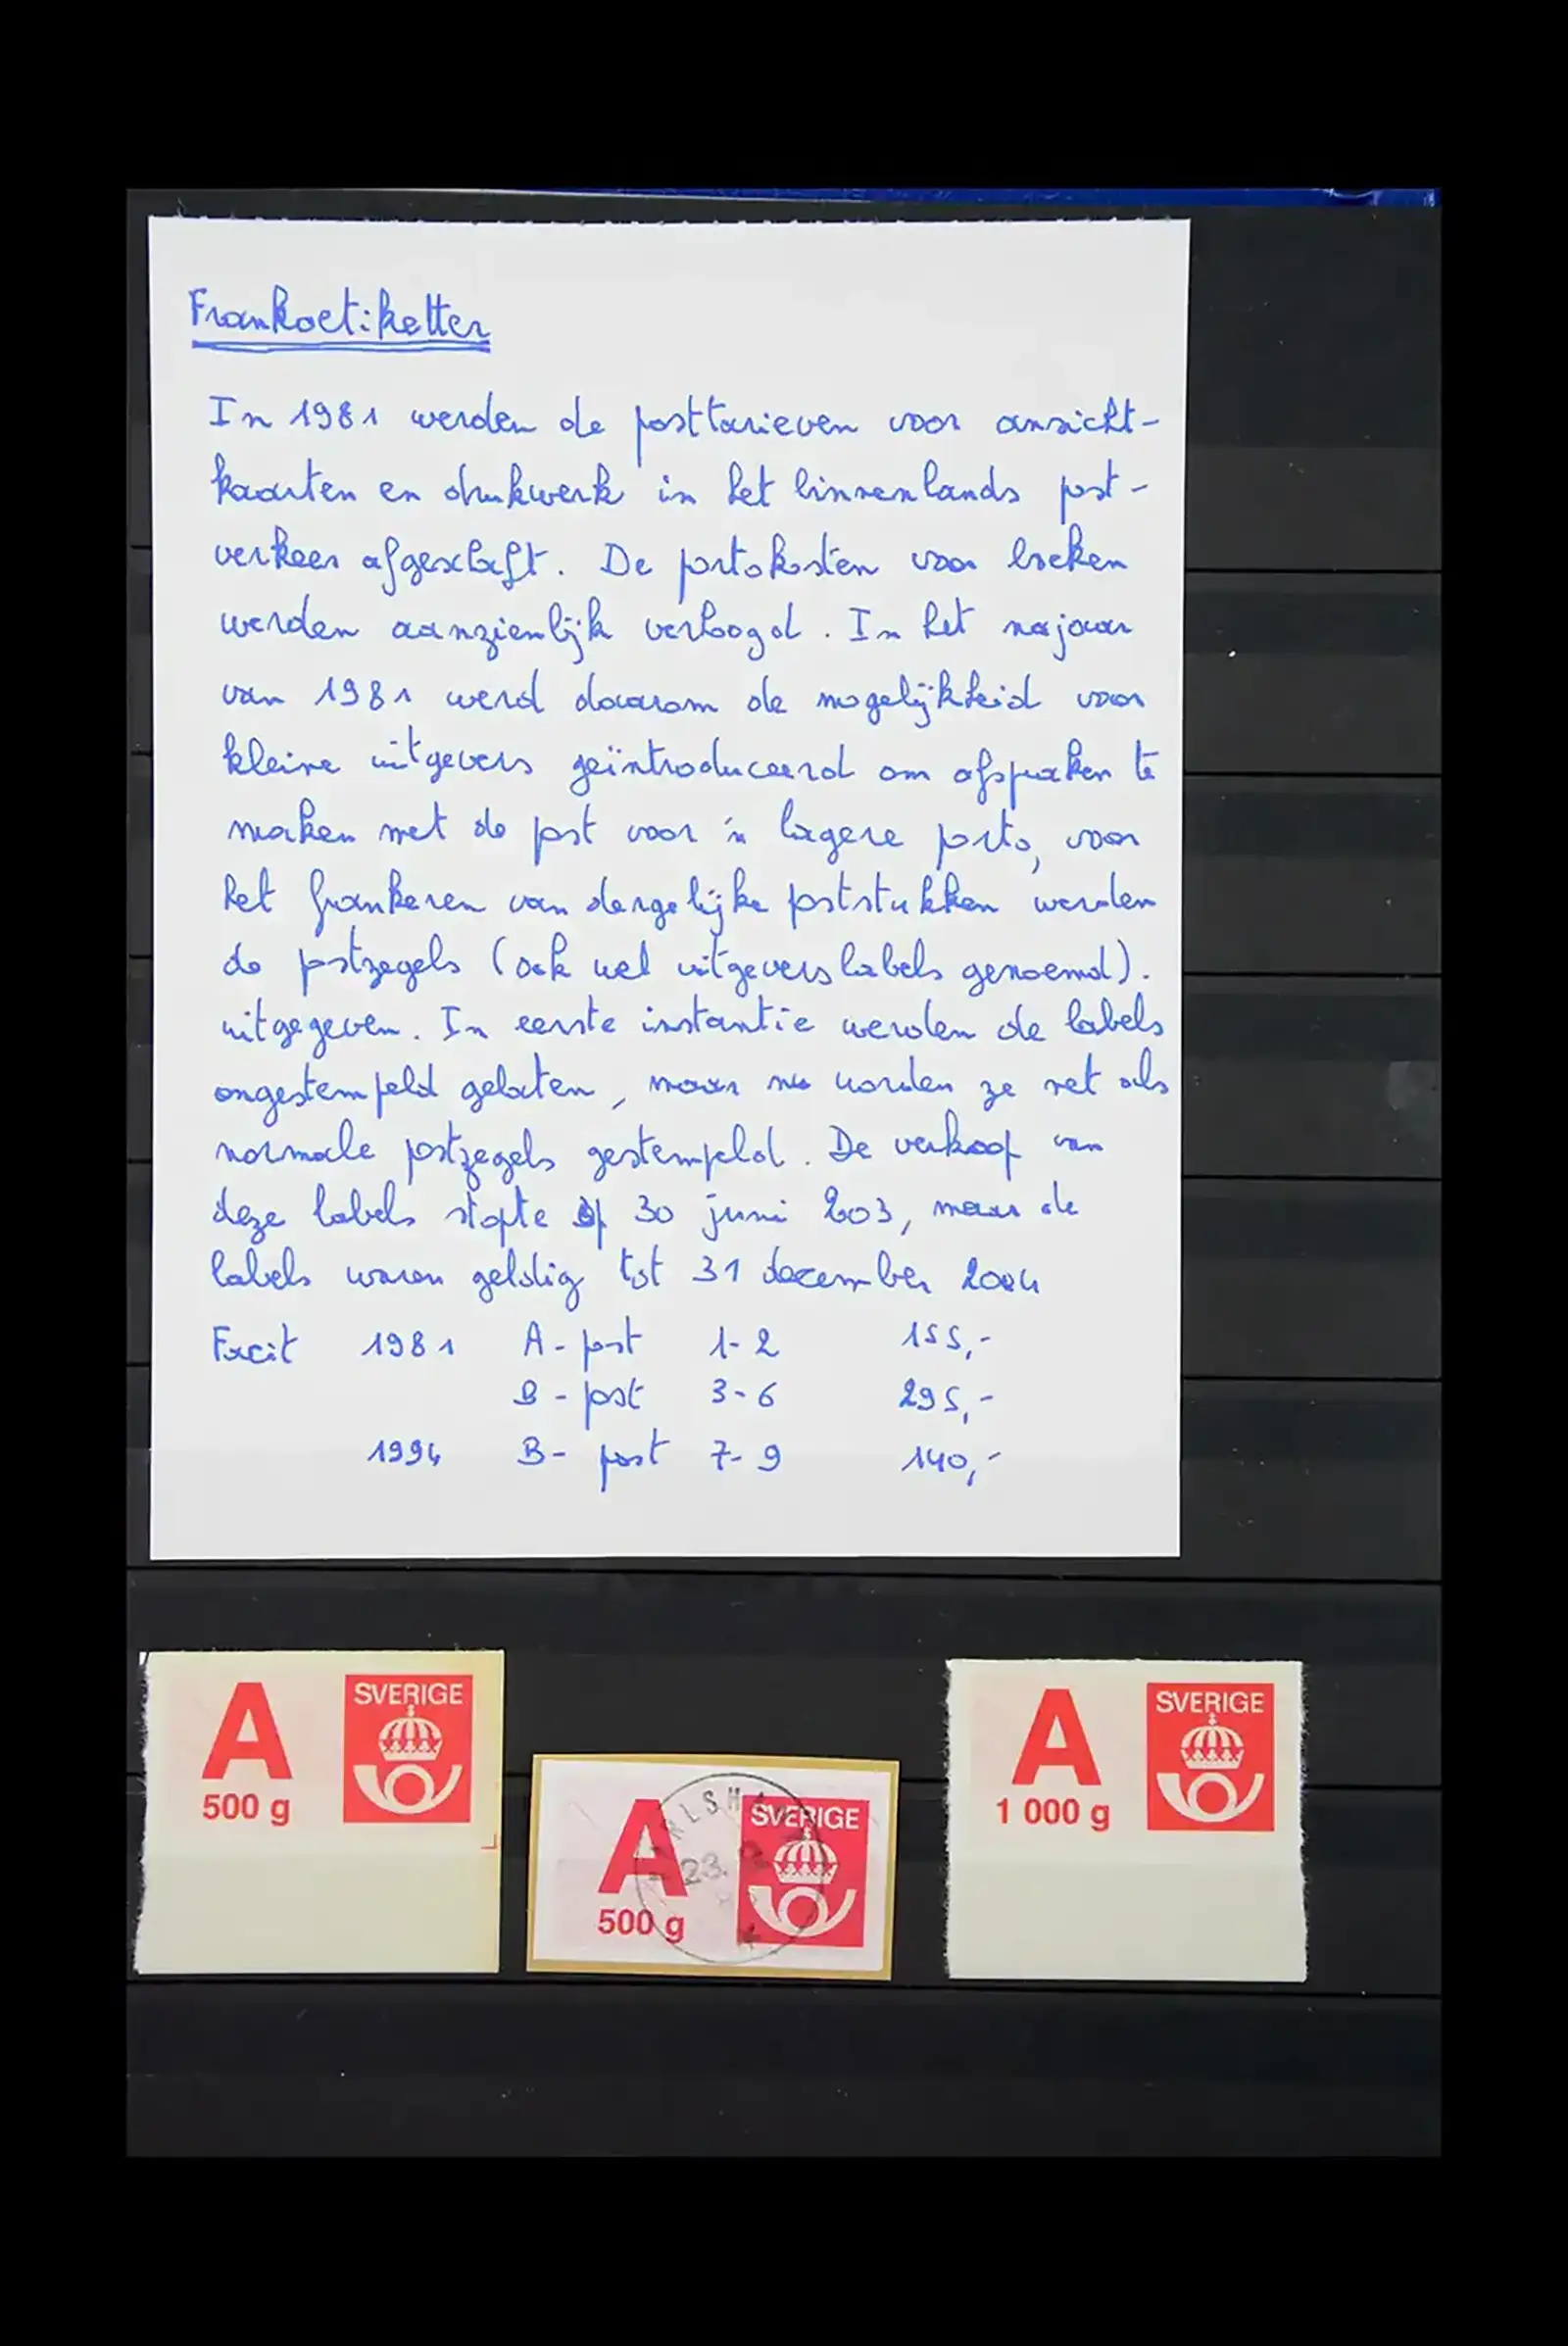 Frankoetiketter
In 1981 werden de posttarieven voor ansicht-
kaarten en drukwerk in het binnenlands post-
verkeer afgeschaft. De portokosten voor boeken
werden aanzienlijk verhoogd. In het najaar
van 1981 werd daarom de mogelijkheid voor
kleine uitgevers geïntroduceerd om afspraken te
maken met de post voor 'n lagere porto, voor
het frankeren van dergelijke poststukken werden
de postzegels (ook wel uitgeverslabels genoemd).
uitgegeven. In eerste instantie werden de labels
ongestempeld gelaten, maar nu worden ze net als
normale postzegels gestempeld. De verkoop van
deze labels stopte op 30 juni 203, maar de
labels waren geldig tot 31 december 2004
Facit 1981 A-post 1-2 155,-
B-post 3-6 295,-
1994 B-post 7-9 140,-
A SVERIGE
500 g
A SVERIGE
500 g
23.
A SVERIGE
1 000 g